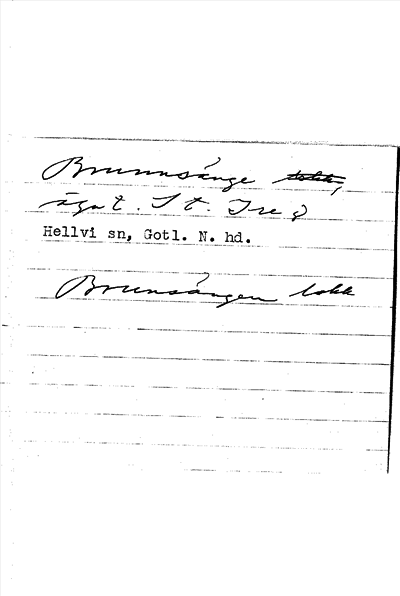 Brunnsänge
ägat. St. Ire 8
Hellvi sn, Gotl. N. hd.
Brunsängen lokk